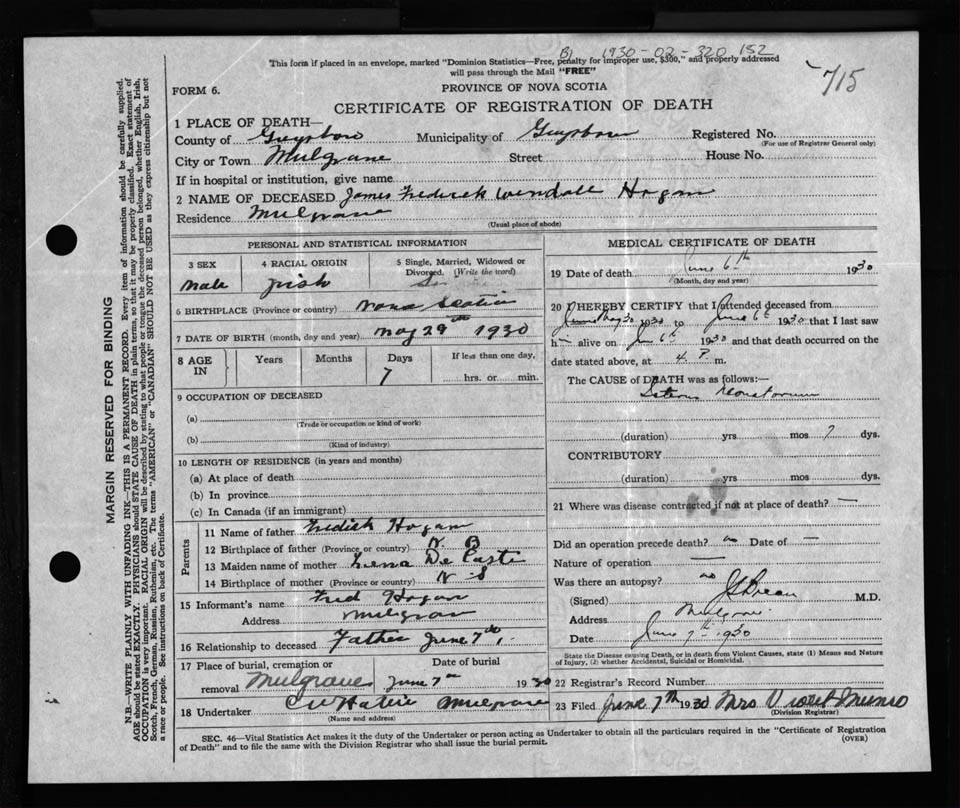 B) 1930-02-320152
This form if placed in an envelope, marked "Dominion Statistics—Free, penalty for improper use, $300," and properly addressed
will pass through the Mail "FREE"
715
FORM 6.
PROVINCE OF NOVA SCOTIA
CERTIFICATE OF REGISTRATION OF DEATH
1 PLACE OF DEATH—
County of Guysboro Municipality of Guysboro Registered No.
(For use of Registrar General only)
City or Town Mulgrave Street House No.
If in hospital or institution, give name
2 NAME OF DECEASED James Fredrick Wendall Hogan
Residence Mulgrave
(Usual place of abode)
PERSONAL AND STATISTICAL INFORMATION
3 SEX 4 RACIAL ORIGIN 5 Single, Married, Widowed or
Divorced. (Write the word)
Male Irish
6 BIRTHPLACE (Province or country) Nova Scotia
7 DATE OF BIRTH (month, day and year) May 29th 1930
8 AGE IN Years Months Days If less than one day,
7 hrs. or min.
9 OCCUPATION OF DECEASED
(a)
(Trade or occupation or kind of work)
(b)
(Kind of industry)
10 LENGTH OF RESIDENCE (in years and months)
(a) At place of death
(b) In province
(c) In Canada (if an immigrant)
Parents
11 Name of father Fredick Hogan
12 Birthplace of father (Province or country) N. B
13 Maiden name of mother Lena De Carte
14 Birthplace of mother (Province or country) N S
15 Informant's name Fred Hogan
Address Mulgrave
16 Relationship to deceased Father June 7th,
17 Place of burial, cremation or Date of burial
removal Mulgrave June 7th 1930
18 Undertaker C W Mulgrave
(Name and address)
MEDICAL CERTIFICATE OF DEATH
19 Date of death June 6th 1930
(Month, day and year)
20 I HEREBY CERTIFY that I attended deceased from
May 30 1930 to June 6th 1930 that I last saw
h— alive on Jun 6th 1930 and that death occurred on the
date stated above, at 4 P m.
The CAUSE of DEATH was as follows:—
Icterus Neonatorum
(duration) yrs mos 7 dys.
CONTRIBUTORY
(duration) yrs mos dys.
21 Where was disease contracted if not at place of death? —
Did an operation precede death? no Date of —
Nature of operation —
Was there an autopsy? no
(Signed) M.D.
Address Mulgrave
Date June 7th 1930
State the Disease causing Death, or in death from Violent Causes, state (1) Means and Nature
of Injury, (2) whether Accidental, Suicidal or Homicidal.
22 Registrar's Record Number
23 Filed June 7th 1930 Mrs Violet Munro
(Division Registrar)
SEC. 46—Vital Statistics Act makes it the duty of the Undertaker or person acting as Undertaker to obtain all the particulars required in the "Certificate of Registration
of Death" and to file the same with the Division Registrar who shall issue the burial permit.
(OVER)
MARGIN RESERVED FOR BINDING
N.B.—WRITE PLAINLY WITH UNFADING INK—THIS IS A PERMANENT RECORD. Every item of information should be carefully supplied.
AGE should be stated EXACTLY. PHYSICIANS should STATE CAUSE OF DEATH in plain terms, so that it may be properly classified. Exact statement of
OCCUPATION is very important. RACIAL ORIGIN will be described by stating to what people or tongue the deceased person belonged, whether English, Irish,
Scotch, French, German, Russian, Ruthenian, etc. The terms "AMERICAN" or "CANADIAN" SHOULD NOT BE USED as they express citizenship but not
a race or people. See instructions on back of Certificate.